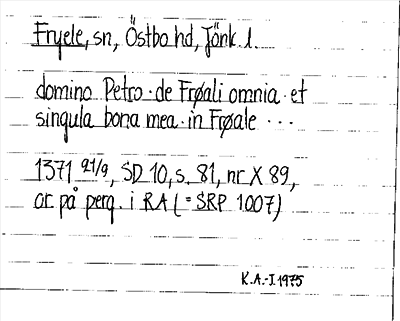 Fryele, sn, Östbo hd, Jönk. l.
domino Petro · de Frøali omnia · et
singula bona mea · in Frøale ...
1371 21/9, SD 10, s. 81, nr X 89,
or på perg. i RA (= SRP 1007)
K.A.-J. 1975